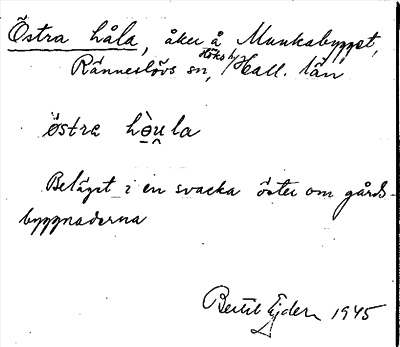 Östra håla, åker å Munkabygget,
Ränneslövs sn, Höks h/ Hall. län
östra hə̀u̯la
Beläget i en svacka öster om gårds-
byggnaderna
Bertil Ejder 1945